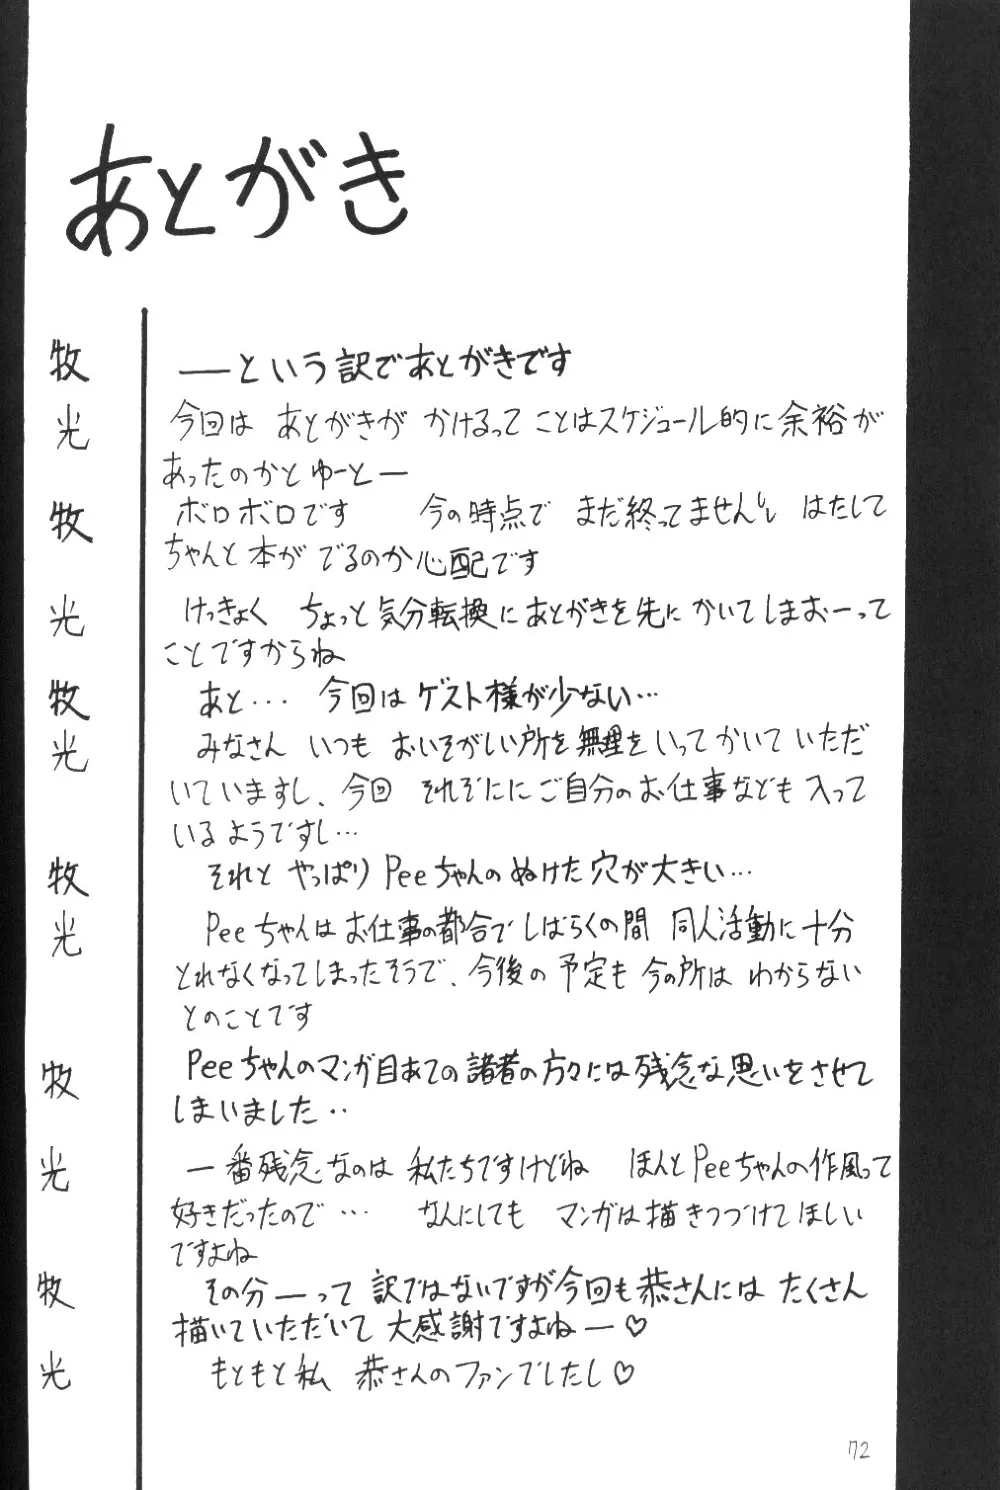 あとがき
牧 ――という訳であとがきです
光 今回は あとがきが かけるってことはスケジュール的に余裕が
あったのかとゆーと―
牧 ボロボロです 今の時点で まだ終ってませんし はたして
ちゃんと本が でるのか心配です
光 けっきょく ちょっと気分転換にあとがきを先に かいてしまおーって
ことですからね
牧 あと... 今回はゲスト様が少ない...
光 みなさん いつも おいそがしい所を無理をいってかいていただ
いていますし、今回 それぞににご自分のお仕事なども入って
いるようですし...
牧 それと やっぱりPeeちゃんのぬけた穴が大きい...
光 Peeちゃんはお仕事の都合でしばらくの間 同人活動に十分
とれなくなってしまったそうで、今後の予定も今の所は わからない
とのことです
牧 Peeちゃんのマンガ目あての諸者の方々には残念な思いをさせて
しまいました..
光 一番残念なのは私たちですけどね ほんとPeeちゃんの作風って
好きだったので... なんにしても マンガは描きつづけてほしい
ですよね
牧 その分―って訳ではないですが今回も恭さんには たくさん
描いていただいて 大感謝ですよね―♡
光 もともと私 恭さんのファンでしたし♡
72